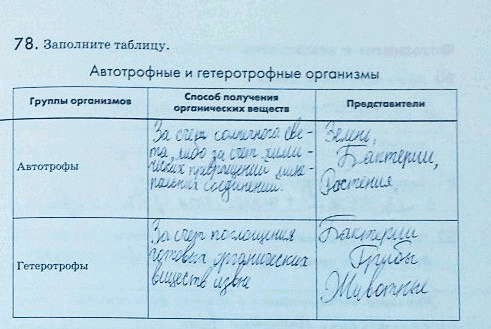 78. Заполните таблицу.
Автотрофные и гетеротрофные организмы
Группы организмов
Способ получения
органических веществ
Представители
Автотрофы
За счет солнечного све-
та, либо за счет хими-
ческих превращений мине-
ральных соединений.
Зелень,
Бактерии,
Растения
Гетеротрофы
За счет поглощения
готовых органических
веществ извне
Бактерии
Грибы
Животные